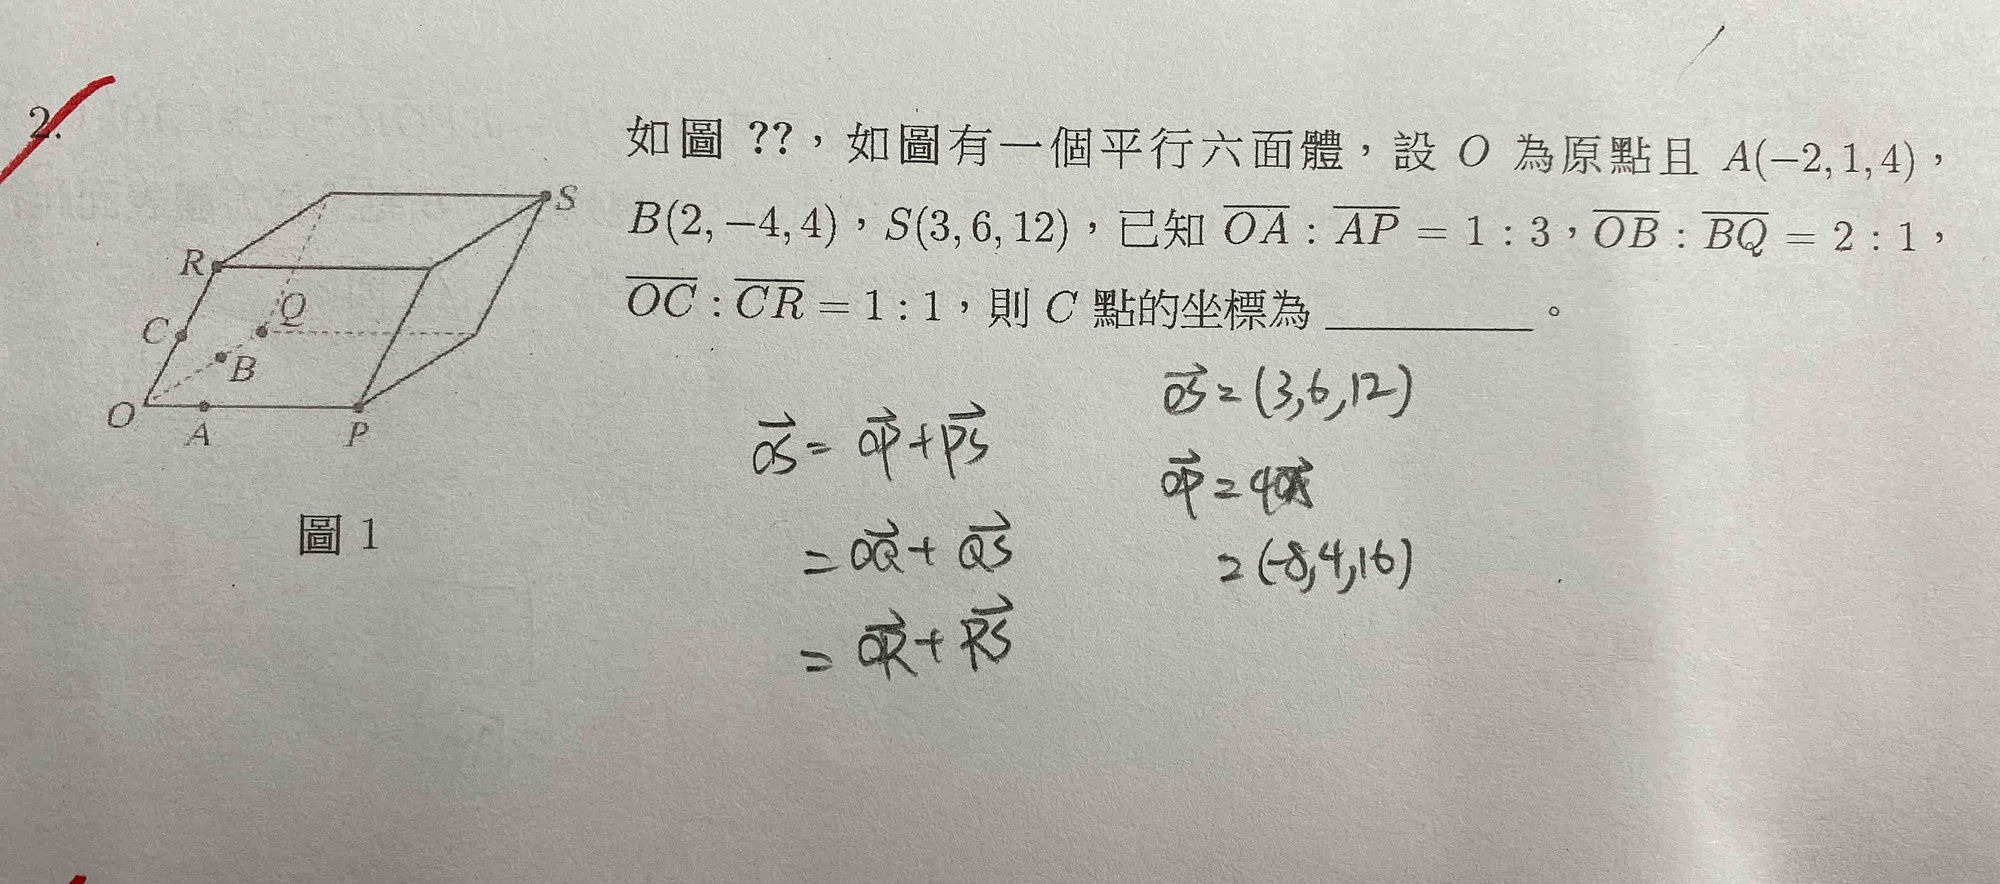 2.
如圖 ??，如圖有一個平行六面體，設 O 為原點且 A(−2, 1, 4)，
B(2, −4, 4)，S(3, 6, 12)，已知 \overline{OA} : \overline{AP} = 1 : 3，\overline{OB} : \overline{BQ} = 2 : 1，
\overline{OC} : \overline{CR} = 1 : 1，則 C 點的坐標為 ________。
S
R
Q
C
B
O
A
P
圖 1
\vec{OS} = \vec{OP} + \vec{PS}
= \vec{OQ} + \vec{QS}
= \vec{OR} + \vec{RS}
\vec{OS} = (3, 6, 12)
\vec{OP} = 4\vec{OA}
= (-8, 4, 16)